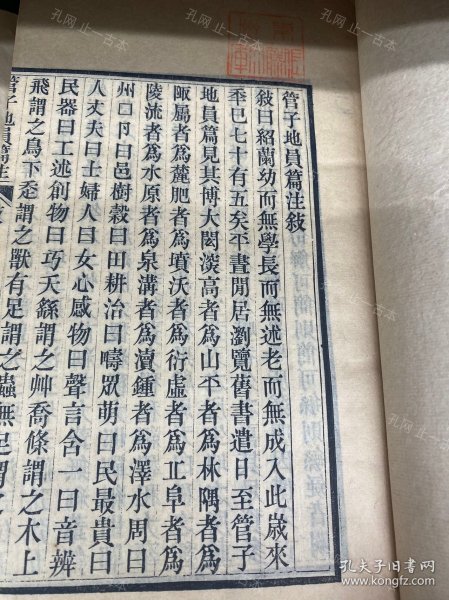 管子地員篇注敍
敍曰紹蘭幼而無學長而無述老而無成入此歲來
秊已七十有五矣平晝閒居瀏覽舊書遣日至管子
地員篇見其博大閎深高者爲山平者爲林隅者爲
陬屬者爲麓肥者爲墳沃者爲衍虛者爲丘阜者爲
陵流者爲水原者爲泉溝者爲瀆鍾者爲澤水周曰
州口卪曰邑樹穀曰田耕治曰疇眾萌曰民最貴曰
人丈夫曰士婦人曰女心感物曰聲言含一曰音辨
民器曰工述創物曰巧天繇謂之艸喬條謂之木上
飛謂之鳥下走謂之獸有足謂之蟲無足謂之
管子地員篇注
孔网 止一古本
孔夫子旧书网
www.kongfz.com